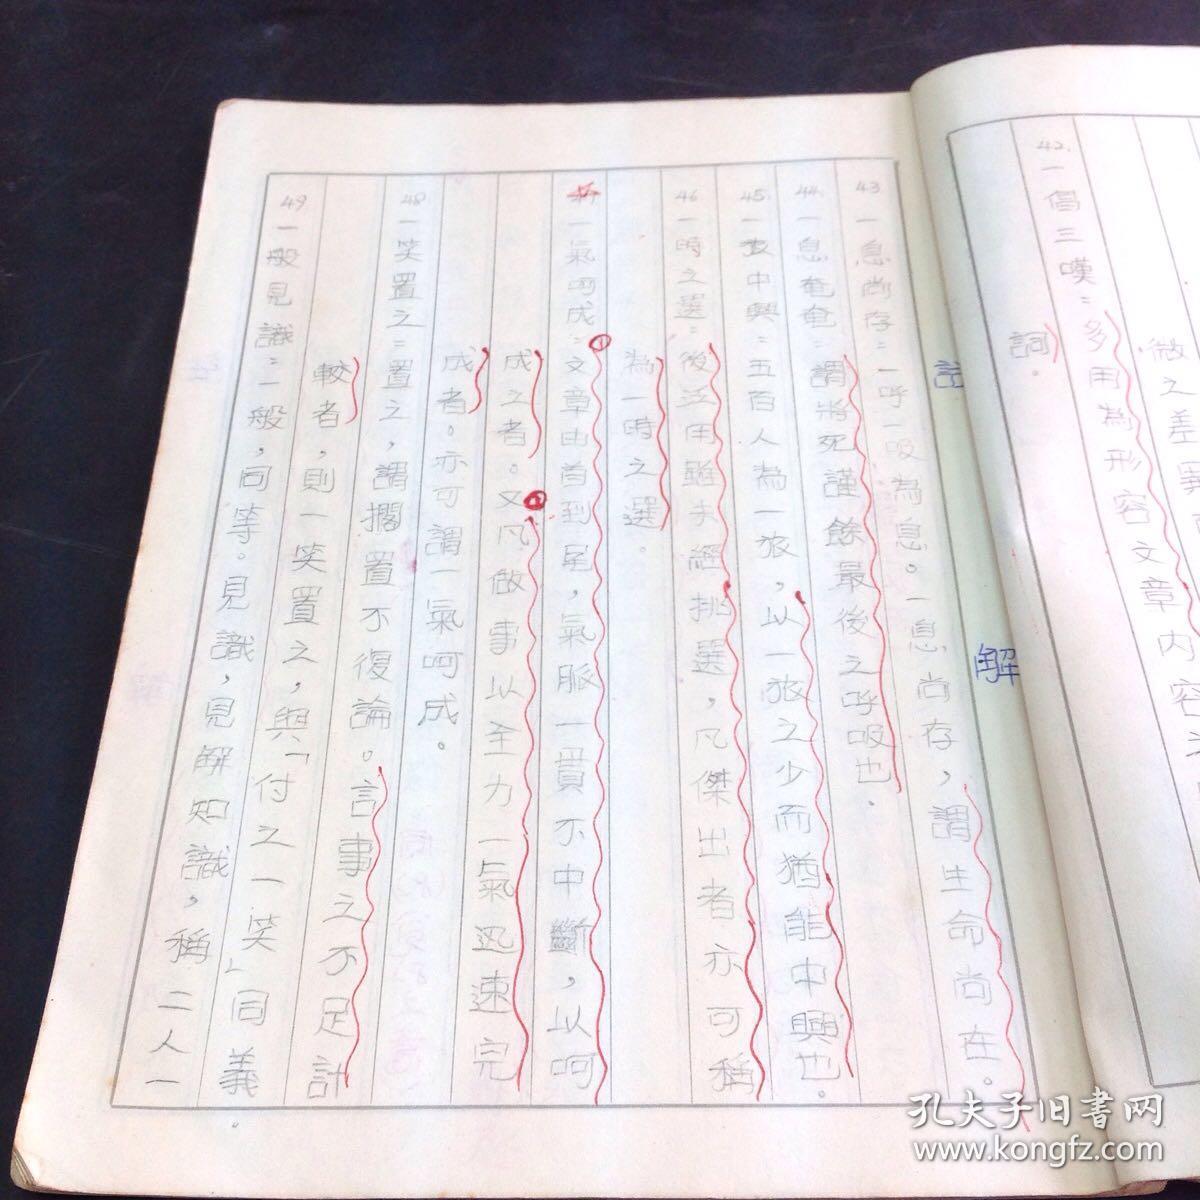 微之差異
42.一倡三嘆：多用為形容文章內容
詞。
註 解
43.一息尚存：一呼一吸為息。一息尚存，謂生命尚在。
44.一息奄奄：謂將死謹餘最後之呼吸也．
45.一旅中興：五百人為一旅，以一旅之少而猶能中興也．
46一時之選：後泛用雖未經挑選，凡傑出者亦可稱
為一時之選．
一氣呵成：①文章由首到尾，氣脈一貫不中斷，以呵
成之者。又②凡做事以至力一氣迅速完
成者。亦可謂一氣呵成。
48一笑置之：置之，謂擱置不復論。言事之不足計
較者，則一笑置之，與「付之一笑」同義．
49一般見識：一般，同等。見識，見解知識，稱二人一
孔夫子旧书网
www.kongfz.com